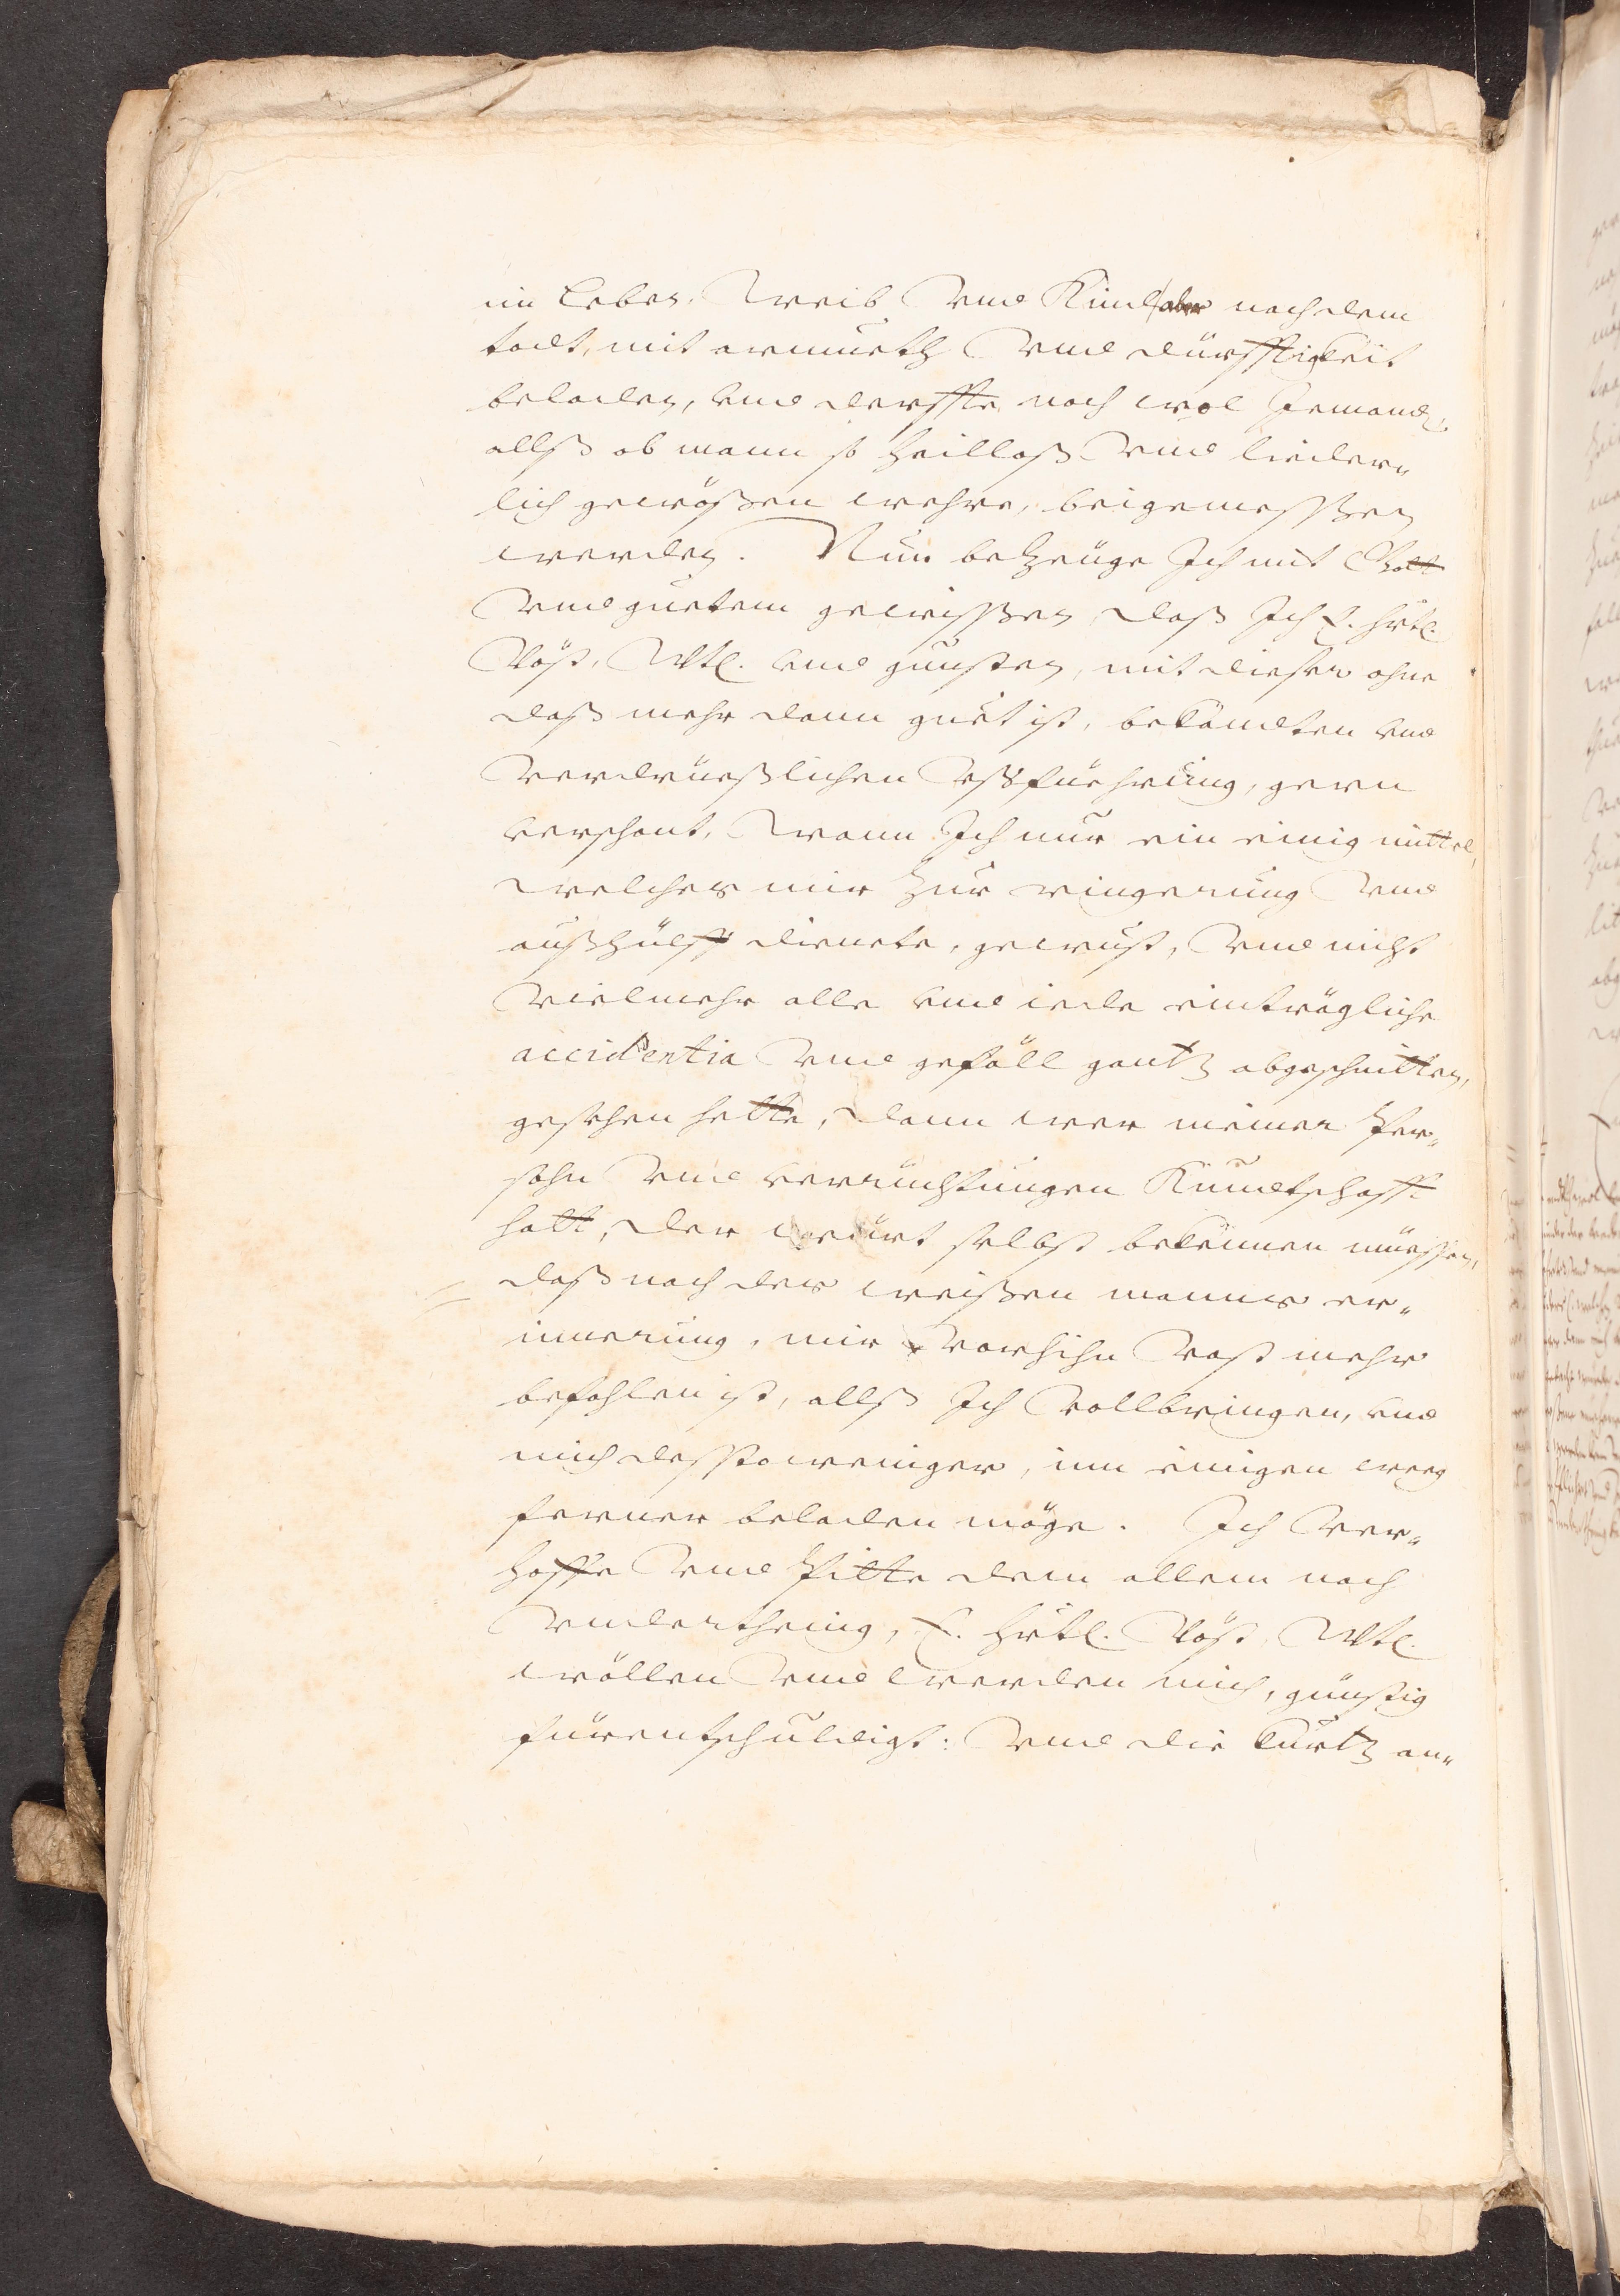 im leben, Weib Vnd Kind aber nach dem
todt, mit armueth Vnd dürfftigkeit
beladen, vnd derffte noch wol Jemandt,
allß ob mann so heilloß Vnd lieder„
lich gewößen wehre, beigemeßßen
werden. Nun betzeuge Ich mit Gott
Vnd guetem gewißßen, daß Ich E.
Vöst. vnd gunsten, mit dieser ohne
daß mehr dann guet ist, bekandten vnd
Verdrueßlichen Außfüehrung, gern
verschont, Wann Ich nur ein einig mittel,
welches mir zur ringerung Vnd
außhülff dienete, gewust, Vnd nicht
Vielmehr alle vnd iede einträgliche
accidentia Vnd gefäll gantz abgeschnitten,
gesehen hette, dann wer meiner Per„
sohn Vnd verrichtungen Kundtschafft
hatt, der würt selbst bekennen müessen,
daß nach des weißen manns er„
innerung, mir Vorhihn Vast mehr
befohlen ist, allß Ich Vollbringen, vnd
mich desto weniger, inn einigen weeg
ferner beladen möge. Ich Ver„
hoffe Vnd Pitte dem allem nach
Vnderthenig, E. Vöst.
wöllen Vnd werden mich, günstig
fürentschuldigt: Vnd die kurtz an„